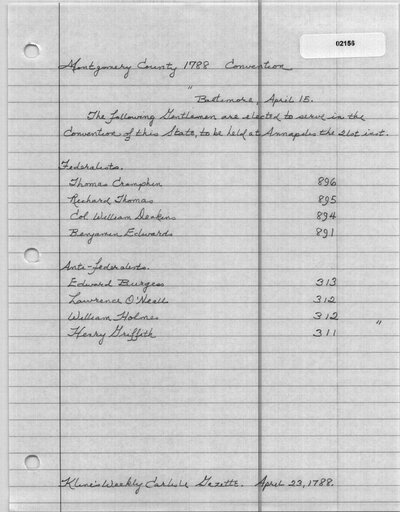 02156
Montgomery County 1788 Convention
"
Baltimore, April 15.
The following Gentlemen are elected to serve in the
Convention of this State, to be held at Annapolis the 21st inst.
Federalists.
Thomas Cramphin 896
Richard Thomas 895
Col. William Deakins 894
Benjamin Edwards 891
Anti-federalists.
Edward Burgess 313
Lawrence O'Neall 312
William Holmes 312
Henry Griffith 311 "
Kline's Weekly Carlisle Gazette. April 23, 1788.